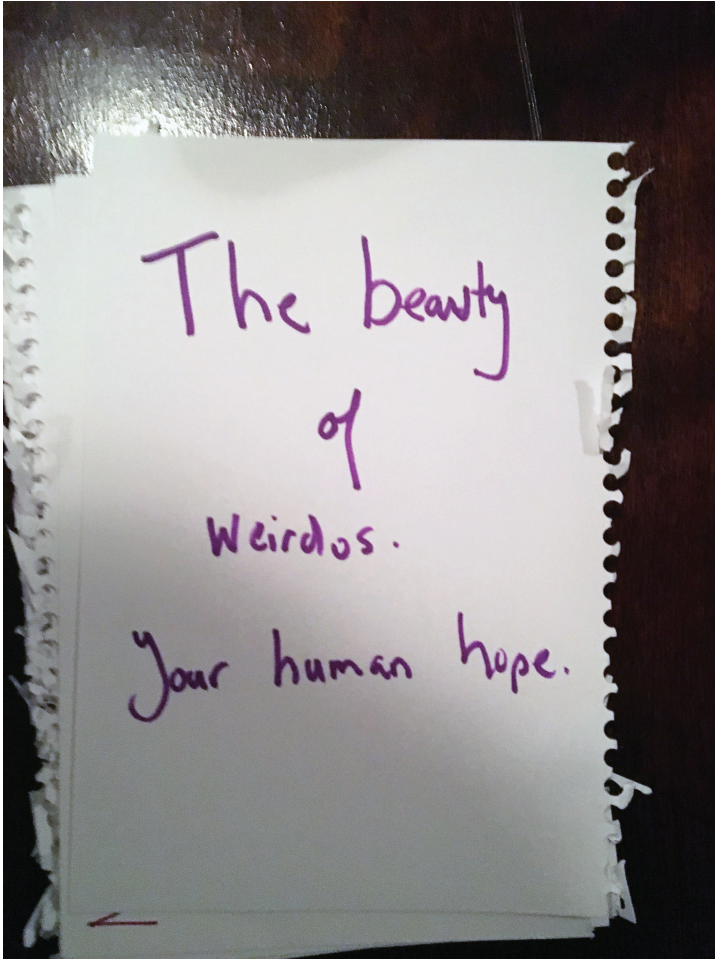 The beauty
of
weirdos.
Your human hope.